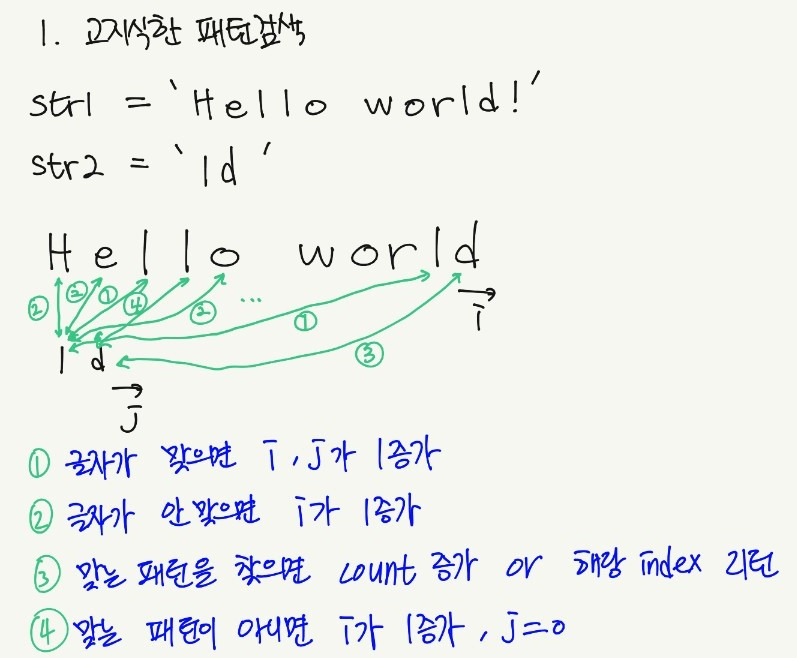 1. 고지식한 패턴검색
str1 = `Hello world!′
str2 = `ld′
Hello world
② ② ① ④ ② ... ① ③ i
ld
j
① 글자가 맞으면 i, j가 1증가
② 글자가 안 맞으면 i가 1증가
③ 맞는 패턴을 찾으면 count 증가 or 해당 index 리턴
④ 맞는 패턴이 아니면 i가 1증가, j=0